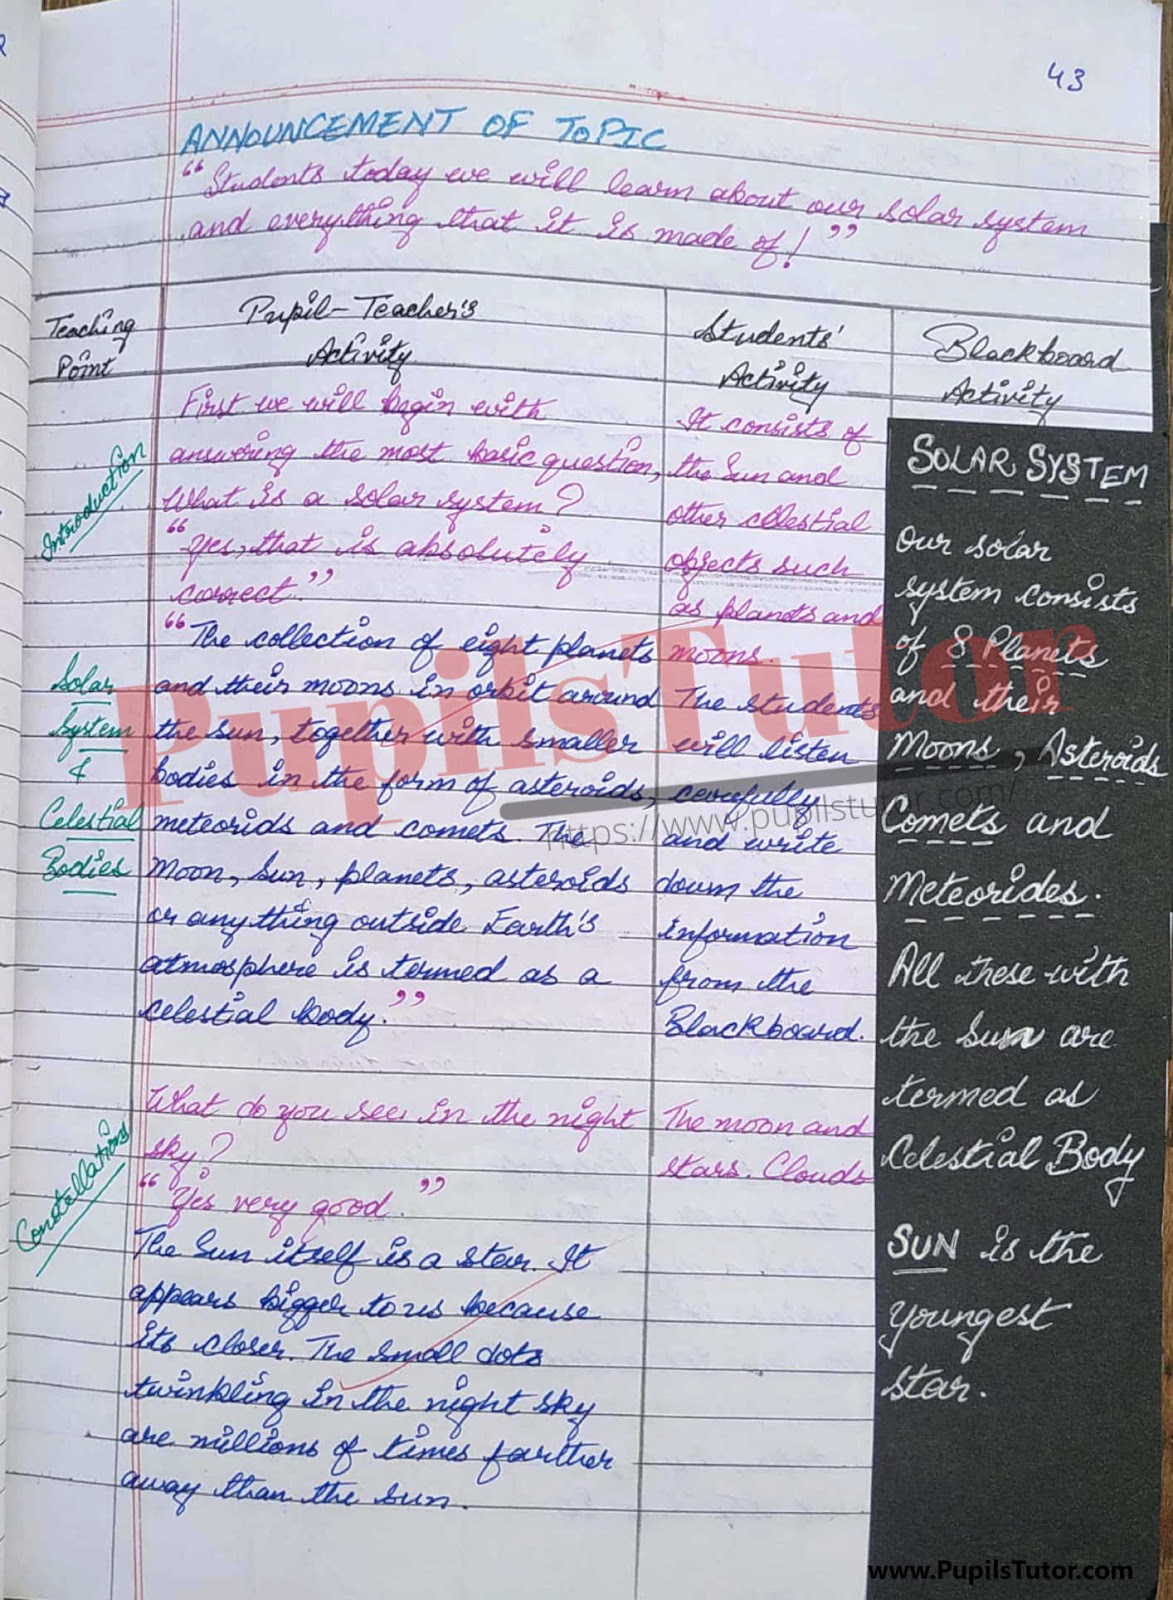 43
ANNOUNCEMENT OF TOPIC
"Students today we will learn about our solar system
and everything that it is made of!"
Teaching
Point
Pupil-Teacher's
Activity
Students'
Activity
Blackboard
Activity
Introduction
First we will begin with
answering the most basic question,
What is a solar system?
"Yes, that is absolutely
correct."
It consists of
the Sun and
other celestial
objects such
as planets and
moons.
Solar
System
&
Celestial
Bodies
"The collection of eight planets
and their moons in orbit around
the sun, together with smaller
bodies in the form of asteroids,
meteorids and comets. The
Moon, Sun, planets, asteroids
or anything outside Earth's
atmosphere is termed as a
celestial body."
The students
will listen
carefully
and write
down the
information
from the
Blackboard.
Constellations
What do you see in the night
sky?
"Yes very good."
The Sun itself is a star. It
appears bigger to us because
its closer. The small dots
twinkling in the night sky
are millions of times farther
away than the sun.
The moon and
stars. Clouds
SOLAR SYSTEM
Our solar
system consists
of 8 Planets
and their
Moons, Asteroids
Comets and
Meteorides.
All these with
the Sun are
termed as
Celestial Body
SUN is the
youngest
star.
PupilsTutor
https://www.pupilstutor.com/
www.PupilsTutor.com